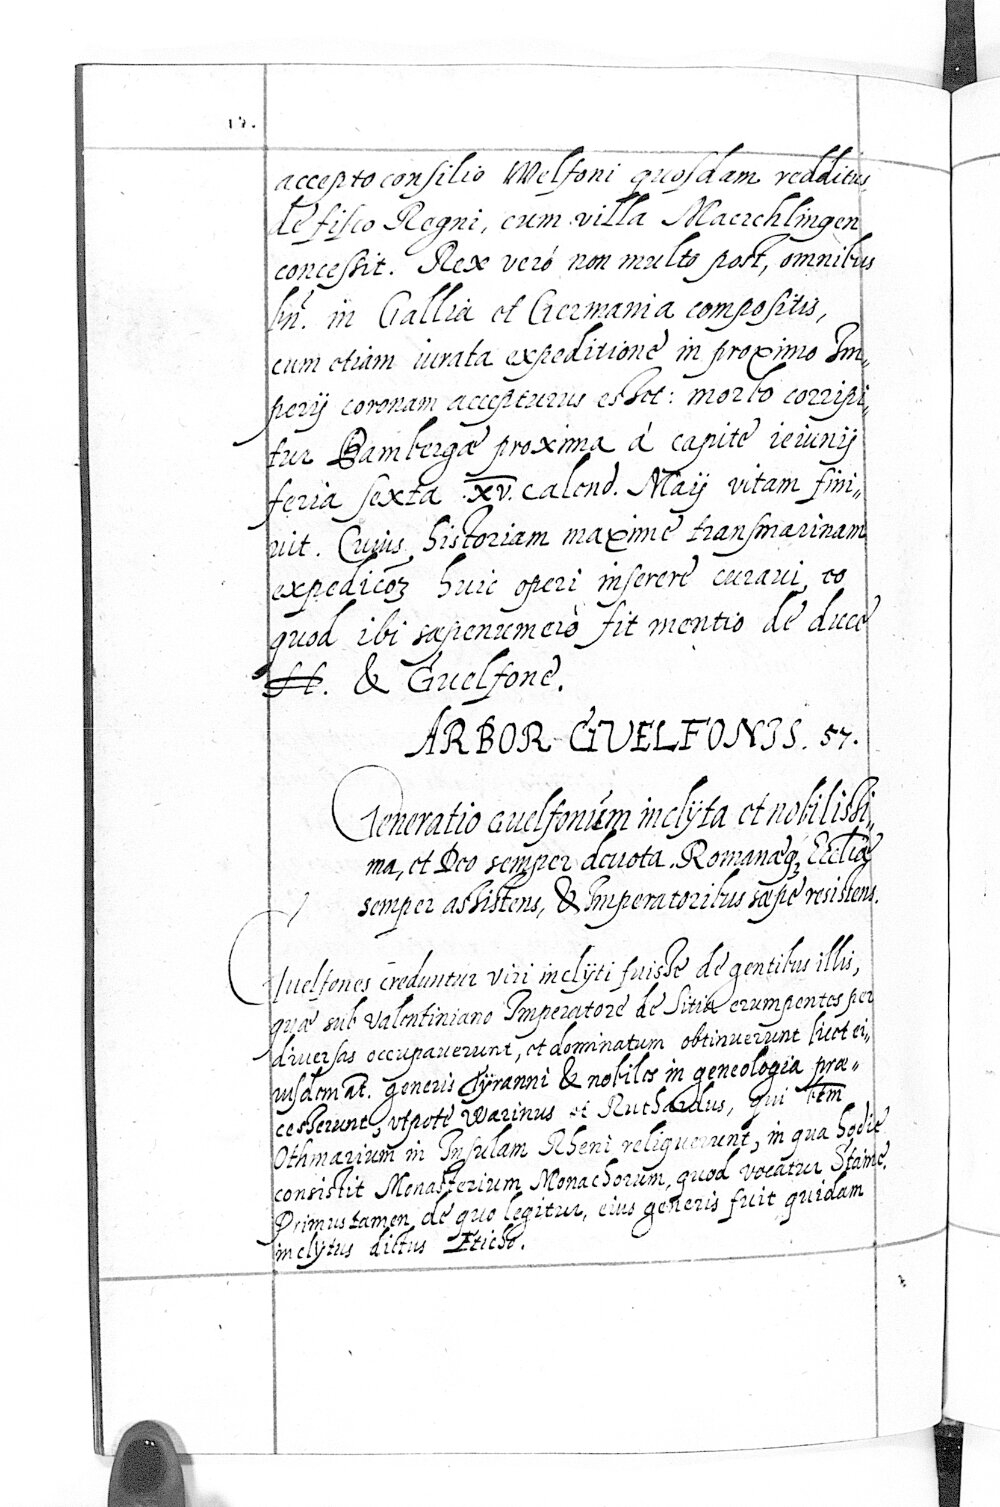 17.
accepto consilio Welfoni quosdam redditus
de fisco Regni, cum villa Maerchlingen
concessit. Rex veró non multo post, omnibus
bñ. in Gallia et Germania compositis,
cum etiam iurata expeditione in proximo Im„
perij coronam accepturus esset: morbo corripi„
tur Bambergæ proxima á capite ieiunij
feria sexta .XV. calend. Maij vitam fini„
uit. Cuius historiam maxime transmarinam
huic operi inserere curaui, eo
quod ibi sæpenumerò fit mentio de duce
& Guelfone.
ARBOR GUELFONIS. 57.
Generatio Guelfonum inclyta et nobilissi„
ma, et Deo semper deuota, Romanæq₃ Eccliæ
semper assistens, & Imperatoribus sæpe resistens.
Guelfones creduntur viri inclyti fuisse de gentibus illis,
quæ sub Valentiniano Imperatore de Sitia erumpentes per
diuersas occupauerunt, et dominatum obtinuerunt licet ei„
usdem at. generis Tyranni & nobiles in geneologia præ„
cesserunt, vtpote Warinus et Ruthardus, qui
Othmarium in Insulam Rheni reliquerunt, in qua hodie
consistit Monasterium Monachorum, quod vocatur Staine.
Primus tamen de quo legitur, eius generis fuit quidam
inclytus dictus Eticho.